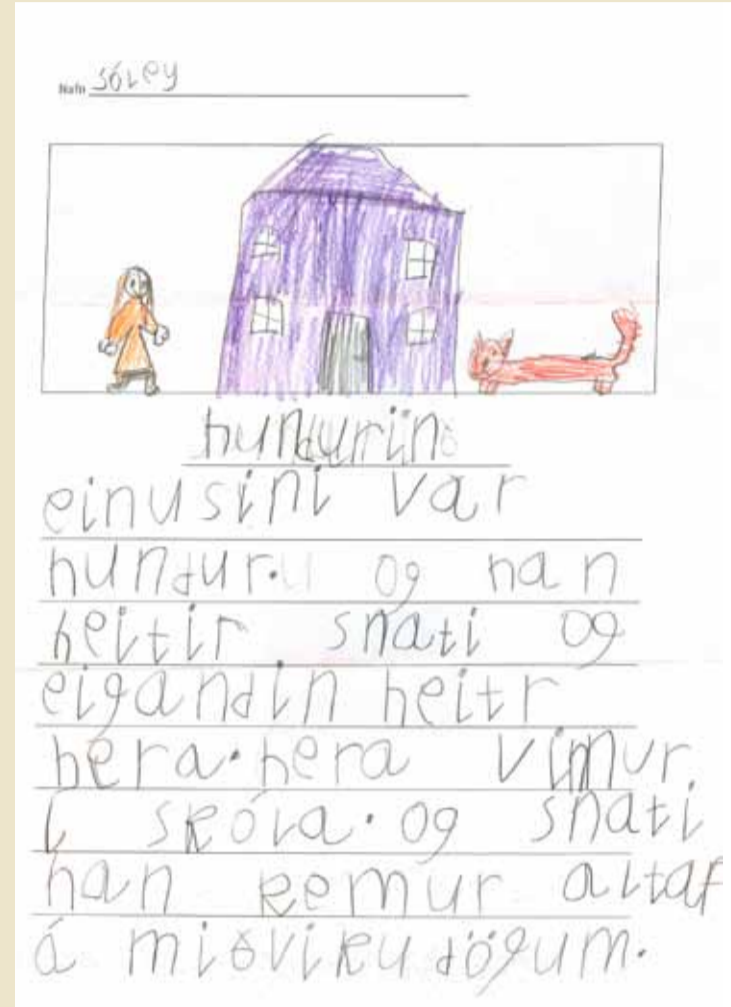 Nafn sóley
hundurin
einusini var
hundur. og han
heitir snati og
eigandin heitr
hera. hera vimur
í skóla. og snati
han kemur altaf
á miðvikudögum.